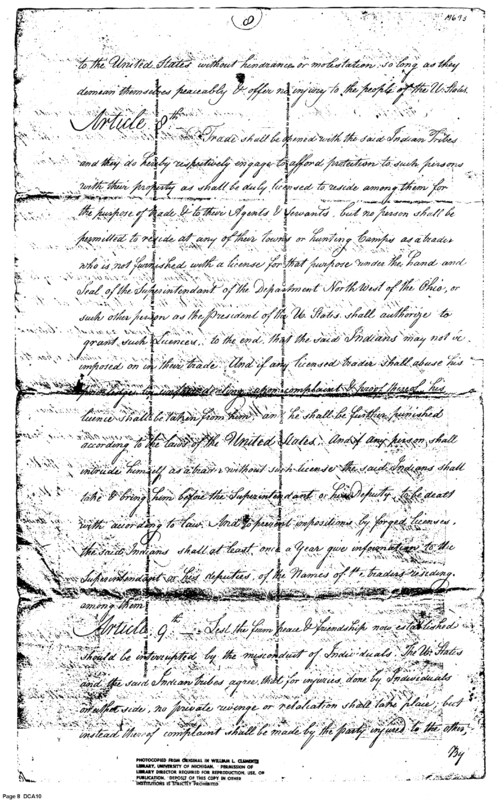 8
M693
to the United States without hindrance or molestation so long as they
demean themselves peaceably & offer no injury to the people of the U. States.
Article 8th
Trade shall be opened with the said Indian Tribes
and they do hereby respectively engage to afford protection to such persons
with their property as shall be duly licensed to reside among them for
the purpose of trade & to their Agents & Servants, but no person shall be
permitted to reside at any of their towns or hunting Camps as a trader
who is not furnished with a license for that purpose under the hand and
Seal of the Superintendant of the Department North West of the Ohio, or
such other person as the President of the U. States shall authorize to
grant such Licences, to the end that the said Indians may not be
imposed on in their trade. And if any licensed trader shall abuse his
privilege complaint & proof thereof his
licence shall be taken from him, and he shall be further punished
according to the laws of the United States. And if any person shall
intrude himself as a trader without such license the said Indians shall
take & bring him before the Superintendant or his Deputy, to be dealt
with according to law. And to prevent impositions by forged licenses,
the said Indians shall at least once a Year give information to the
Superintendant or his deputies, of the Names of the traders residing
among them.
Article 9th Lest the firm peace & friendship now established
should be interrupted by the misconduct of Individuals, The U. States
and the said Indian tribes agree, that for injuries done by Individuals
on either side, no private revenge or retaliation shall take place; but
instead thereof complaint shall be made by the party injured to the other,
By
PHOTOCOPIED FROM ORIGINAL IN WILLIAM L. CLEMENTS
LIBRARY, UNIVERSITY OF MICHIGAN. PERMISSION OF
LIBRARY DIRECTOR REQUIRED FOR REPRODUCTION, USE, OR
PUBLICATION. DEPOSIT OF THIS COPY IN OTHER
INSTITUTIONS IS STRICTLY PROHIBITED
Page 8 DCA10